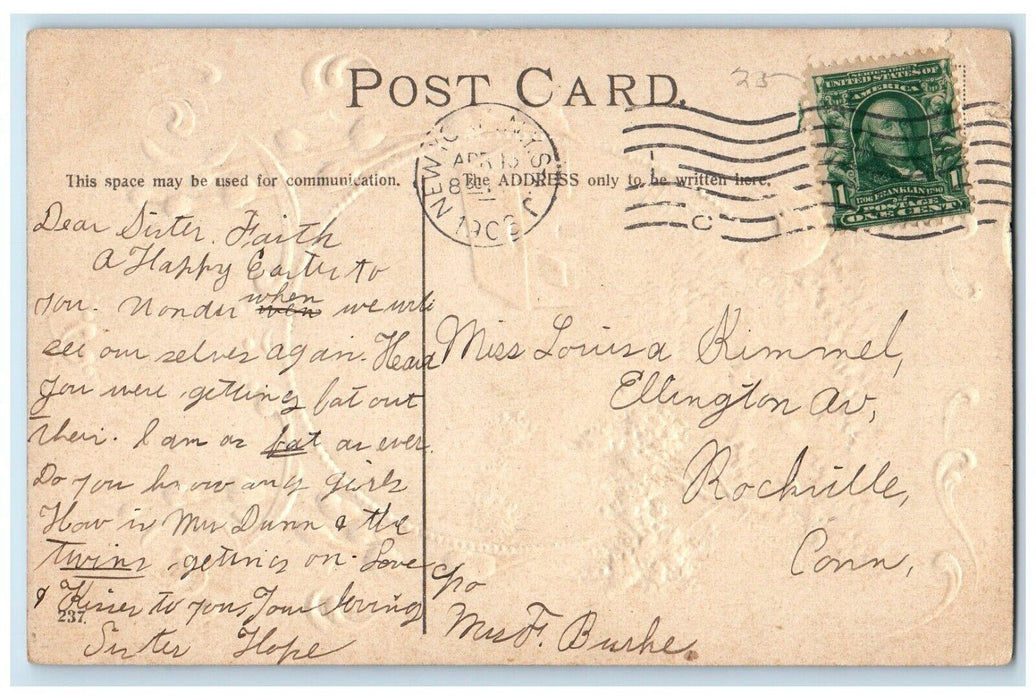 POST CARD.
25
SERIES 1902
UNITED STATES OF
AMERICA
1 1706 FRANKLIN 1790 1
POSTAGE
ONE CENT
NEW
APR 13
8
190
N.J.
C
This space may be used for communication.
The ADDRESS only to be written here.
Dear Sister Faith
A Happy Easter to
you. Wonder when we will
see our selves again. Heard
you were getting fat out
their. I am as fat as ever.
Do you know any girls
How is Mrs Dunn & the
twins getting on. Love
& Kisses to you, Your loving
237.
Sister Hope
Miss Louisa Kimmel,
Ellington Av,
Rockville,
Conn,
c/o
Mrs F. Burke.